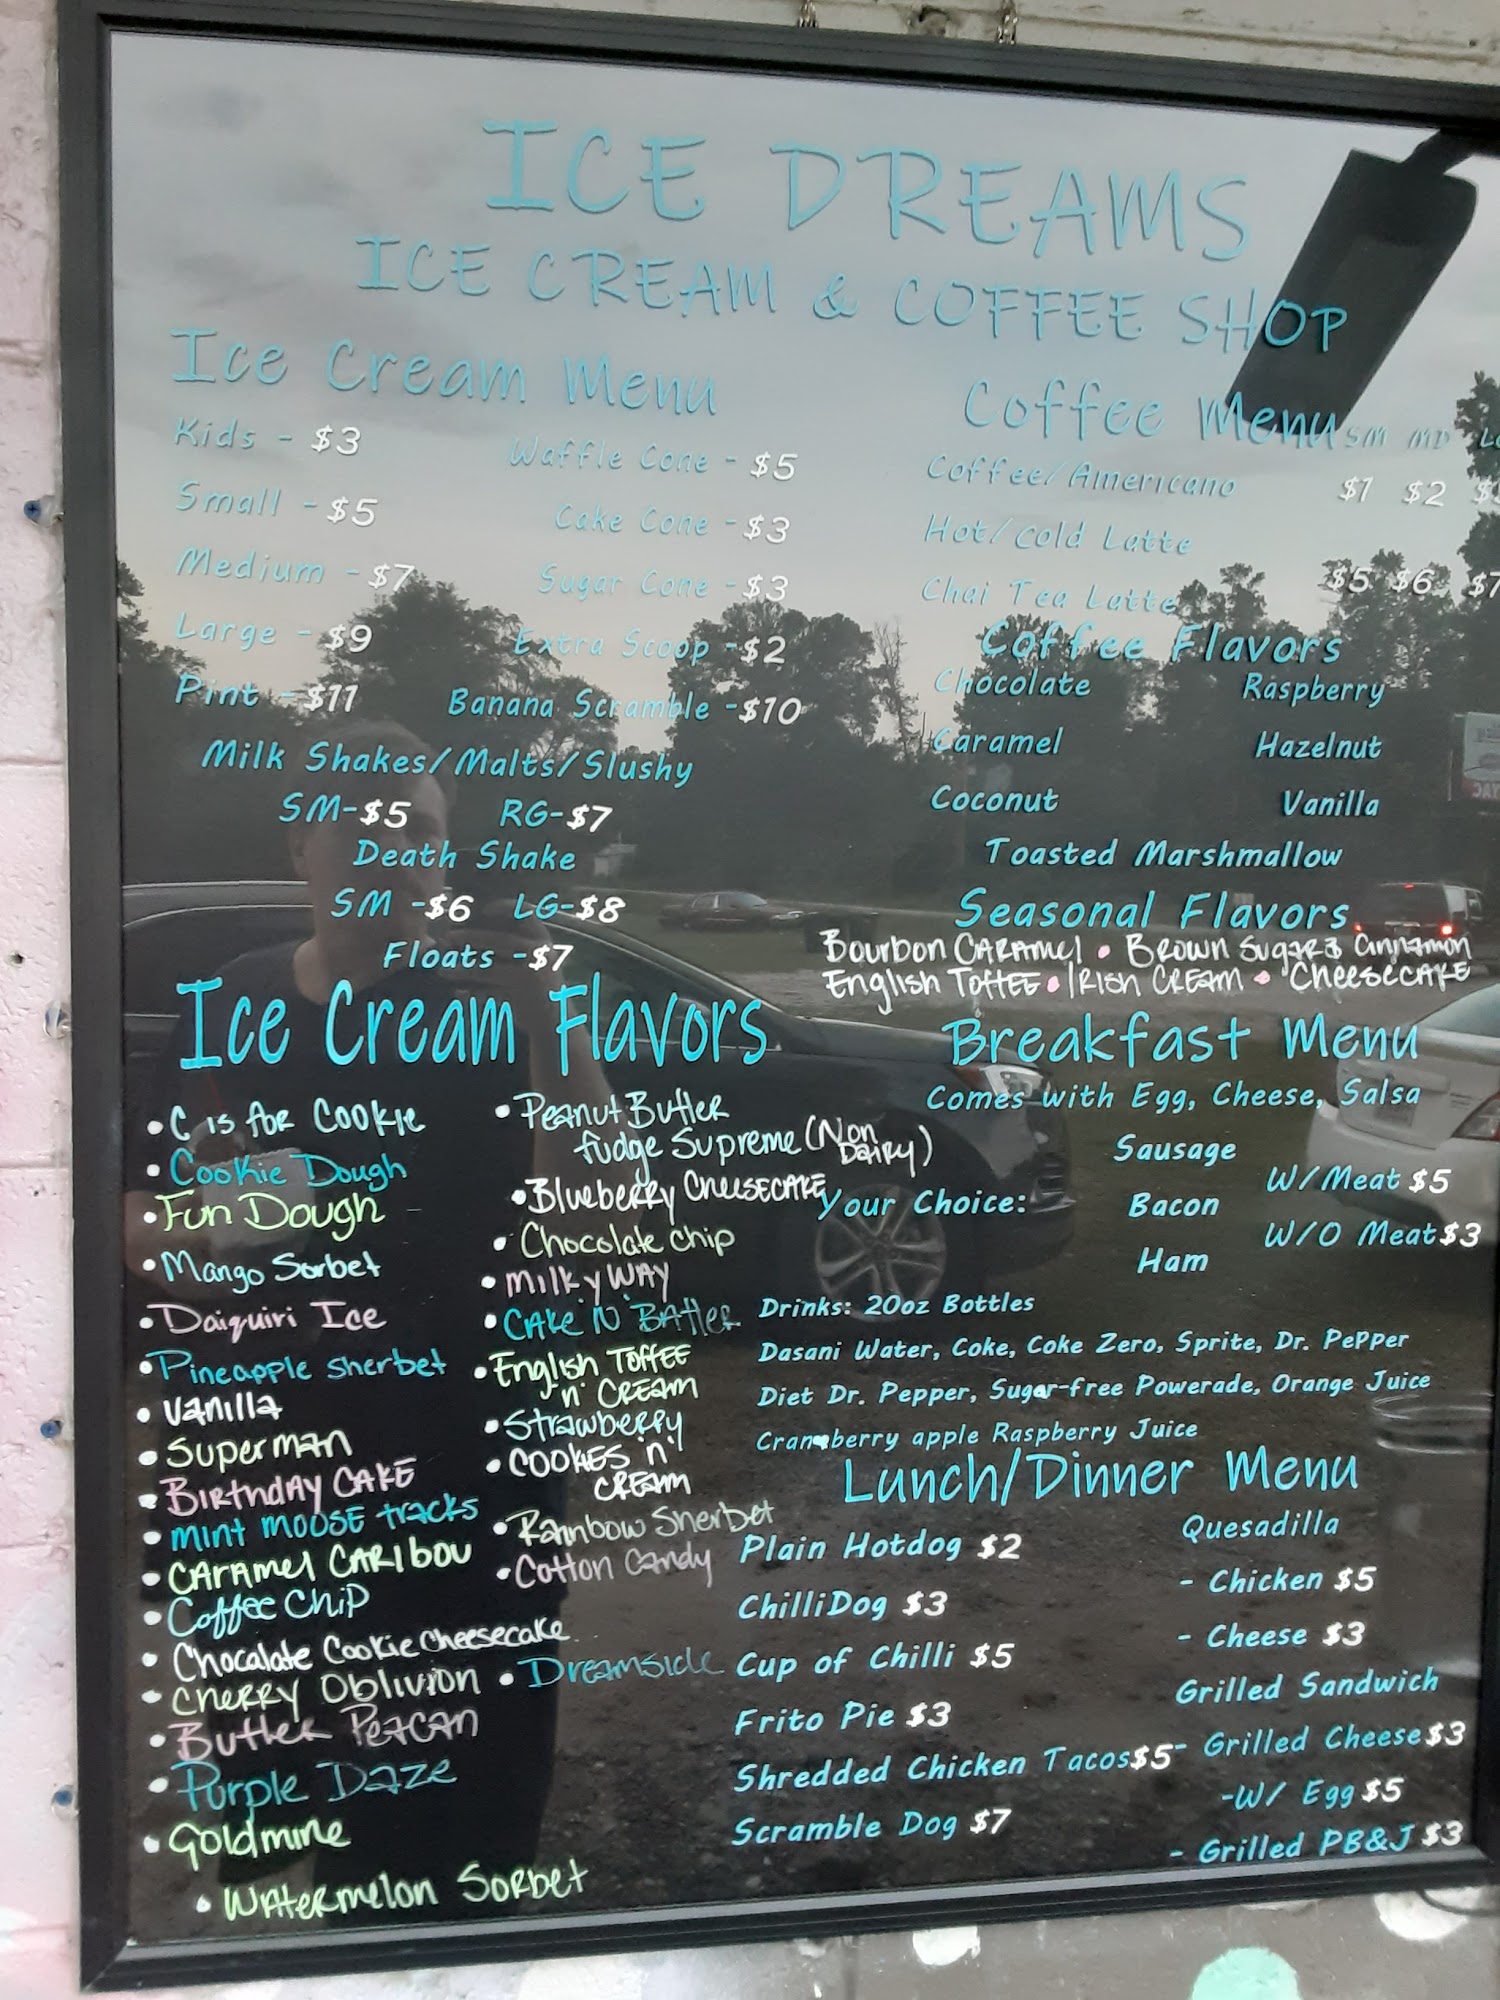 ICE DREAMS
ICE CREAM & COFFEE SHOP
Ice Cream Menu
Kids - $3
Waffle Cone - $5
Small - $5
Cake Cone - $3
Medium - $7
Sugar Cone - $3
Large - $9
Extra Scoop - $2
Pint - $11
Banana Scramble - $10
Milk Shakes/Malts/Slushy
SM-$5 RG-$7
Death Shake
SM -$6 LG-$8
Floats -$7
Ice Cream Flavors
• C is for Cookie
• Cookie Dough
• Fun Dough
• Mango Sorbet
• Daiquiri Ice
• Pineapple Sherbet
• Vanilla
• Superman
• Birthday CAKE
• mint MOOSE tracks
• CARAMEL CARIBOU
• Coffee Chip
• Chocalate Cookie Cheesecake
• Cherry Oblivion
• Butter Peacan
• Purple Daze
• Goldmine
• Watermelon Sorbet
• Peanut Butter
fudge Supreme (Non
Dairy)
• Blueberry Cheesecake
• Chocolate chip
• Milky WAY
• CAKE 'N' BATTER
• English Toffee
'n' CREAM
• Strawberry
• COOKIES 'n'
CREAM
• Rainbow Sherbet
• Cotton Candy
• Dreamsicle
Coffee Menu SM MD
Coffee/Americano $1 $2
Hot/Cold Latte
Chai Tea Latte $5 $6 $7
Coffee Flavors
Chocolate Raspberry
Caramel Hazelnut
Coconut Vanilla
Toasted Marshmallow
Seasonal Flavors
Bourbon CARAMEL • BROWN Sugar & Cinnamon
English Toffee • IRISH CREAM • Cheesecake
Breakfast Menu
Comes with Egg, Cheese, Salsa
Sausage
W/Meat $5
Your Choice: Bacon
W/O Meat $3
Ham
Drinks: 20oz Bottles
Dasani Water, Coke, Coke Zero, Sprite, Dr. Pepper
Diet Dr. Pepper, Sugar-free Powerade, Orange Juice
Cranberry apple Raspberry Juice
Lunch/Dinner Menu
Plain Hotdog $2
ChilliDog $3
Cup of Chilli $5
Frito Pie $3
Shredded Chicken Tacos $5
Scramble Dog $7
Quesadilla
- Chicken $5
- Cheese $3
Grilled Sandwich
- Grilled Cheese $3
-W/ Egg $5
- Grilled PB&J $3